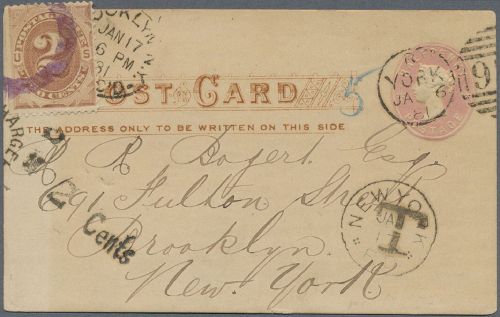 POSTAGE DUE
2
CENTS
BROOKLYN
JAN 17
6 PM
81
YORK
JA 6
81
9
POSTAGE
POST CARD
5
THE ADDRESS ONLY TO BE WRITTEN ON THIS SIDE
R Bogert Esq.
691 Fulton Street
Cents
Brooklyn.
New. York.
NEW YORK
JA
T